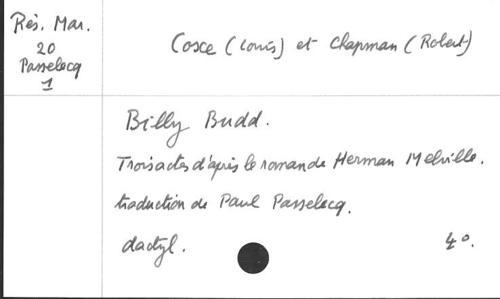 Rés. Mar.
20
Passelecq
1
Cosce (Louis) et Chapman (Robert)
Billy Budd.
Trois actes d'après le roman de Herman Melville.
traduction de Paul Passelecq.
dactyl. 4°.